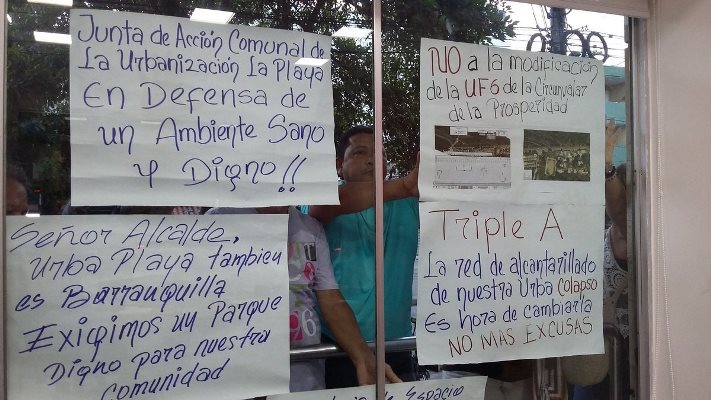 Junta de Acción Comunal de
La Urbanización La Playa
En Defensa de
un Ambiente Sano
y Digno!!
NO a la modificación
de la UF6 de la Circunvalar
de la Prosperidad
Señor Alcalde,
Urba Playa tambien
es Barranquilla
Exigimos un Parque
Digno para nuestra
comunidad
Triple A
La red de alcantarillado
de nuestra Urba colapso
Es hora de cambiarla
NO MAS EXCUSAS
de Espacio